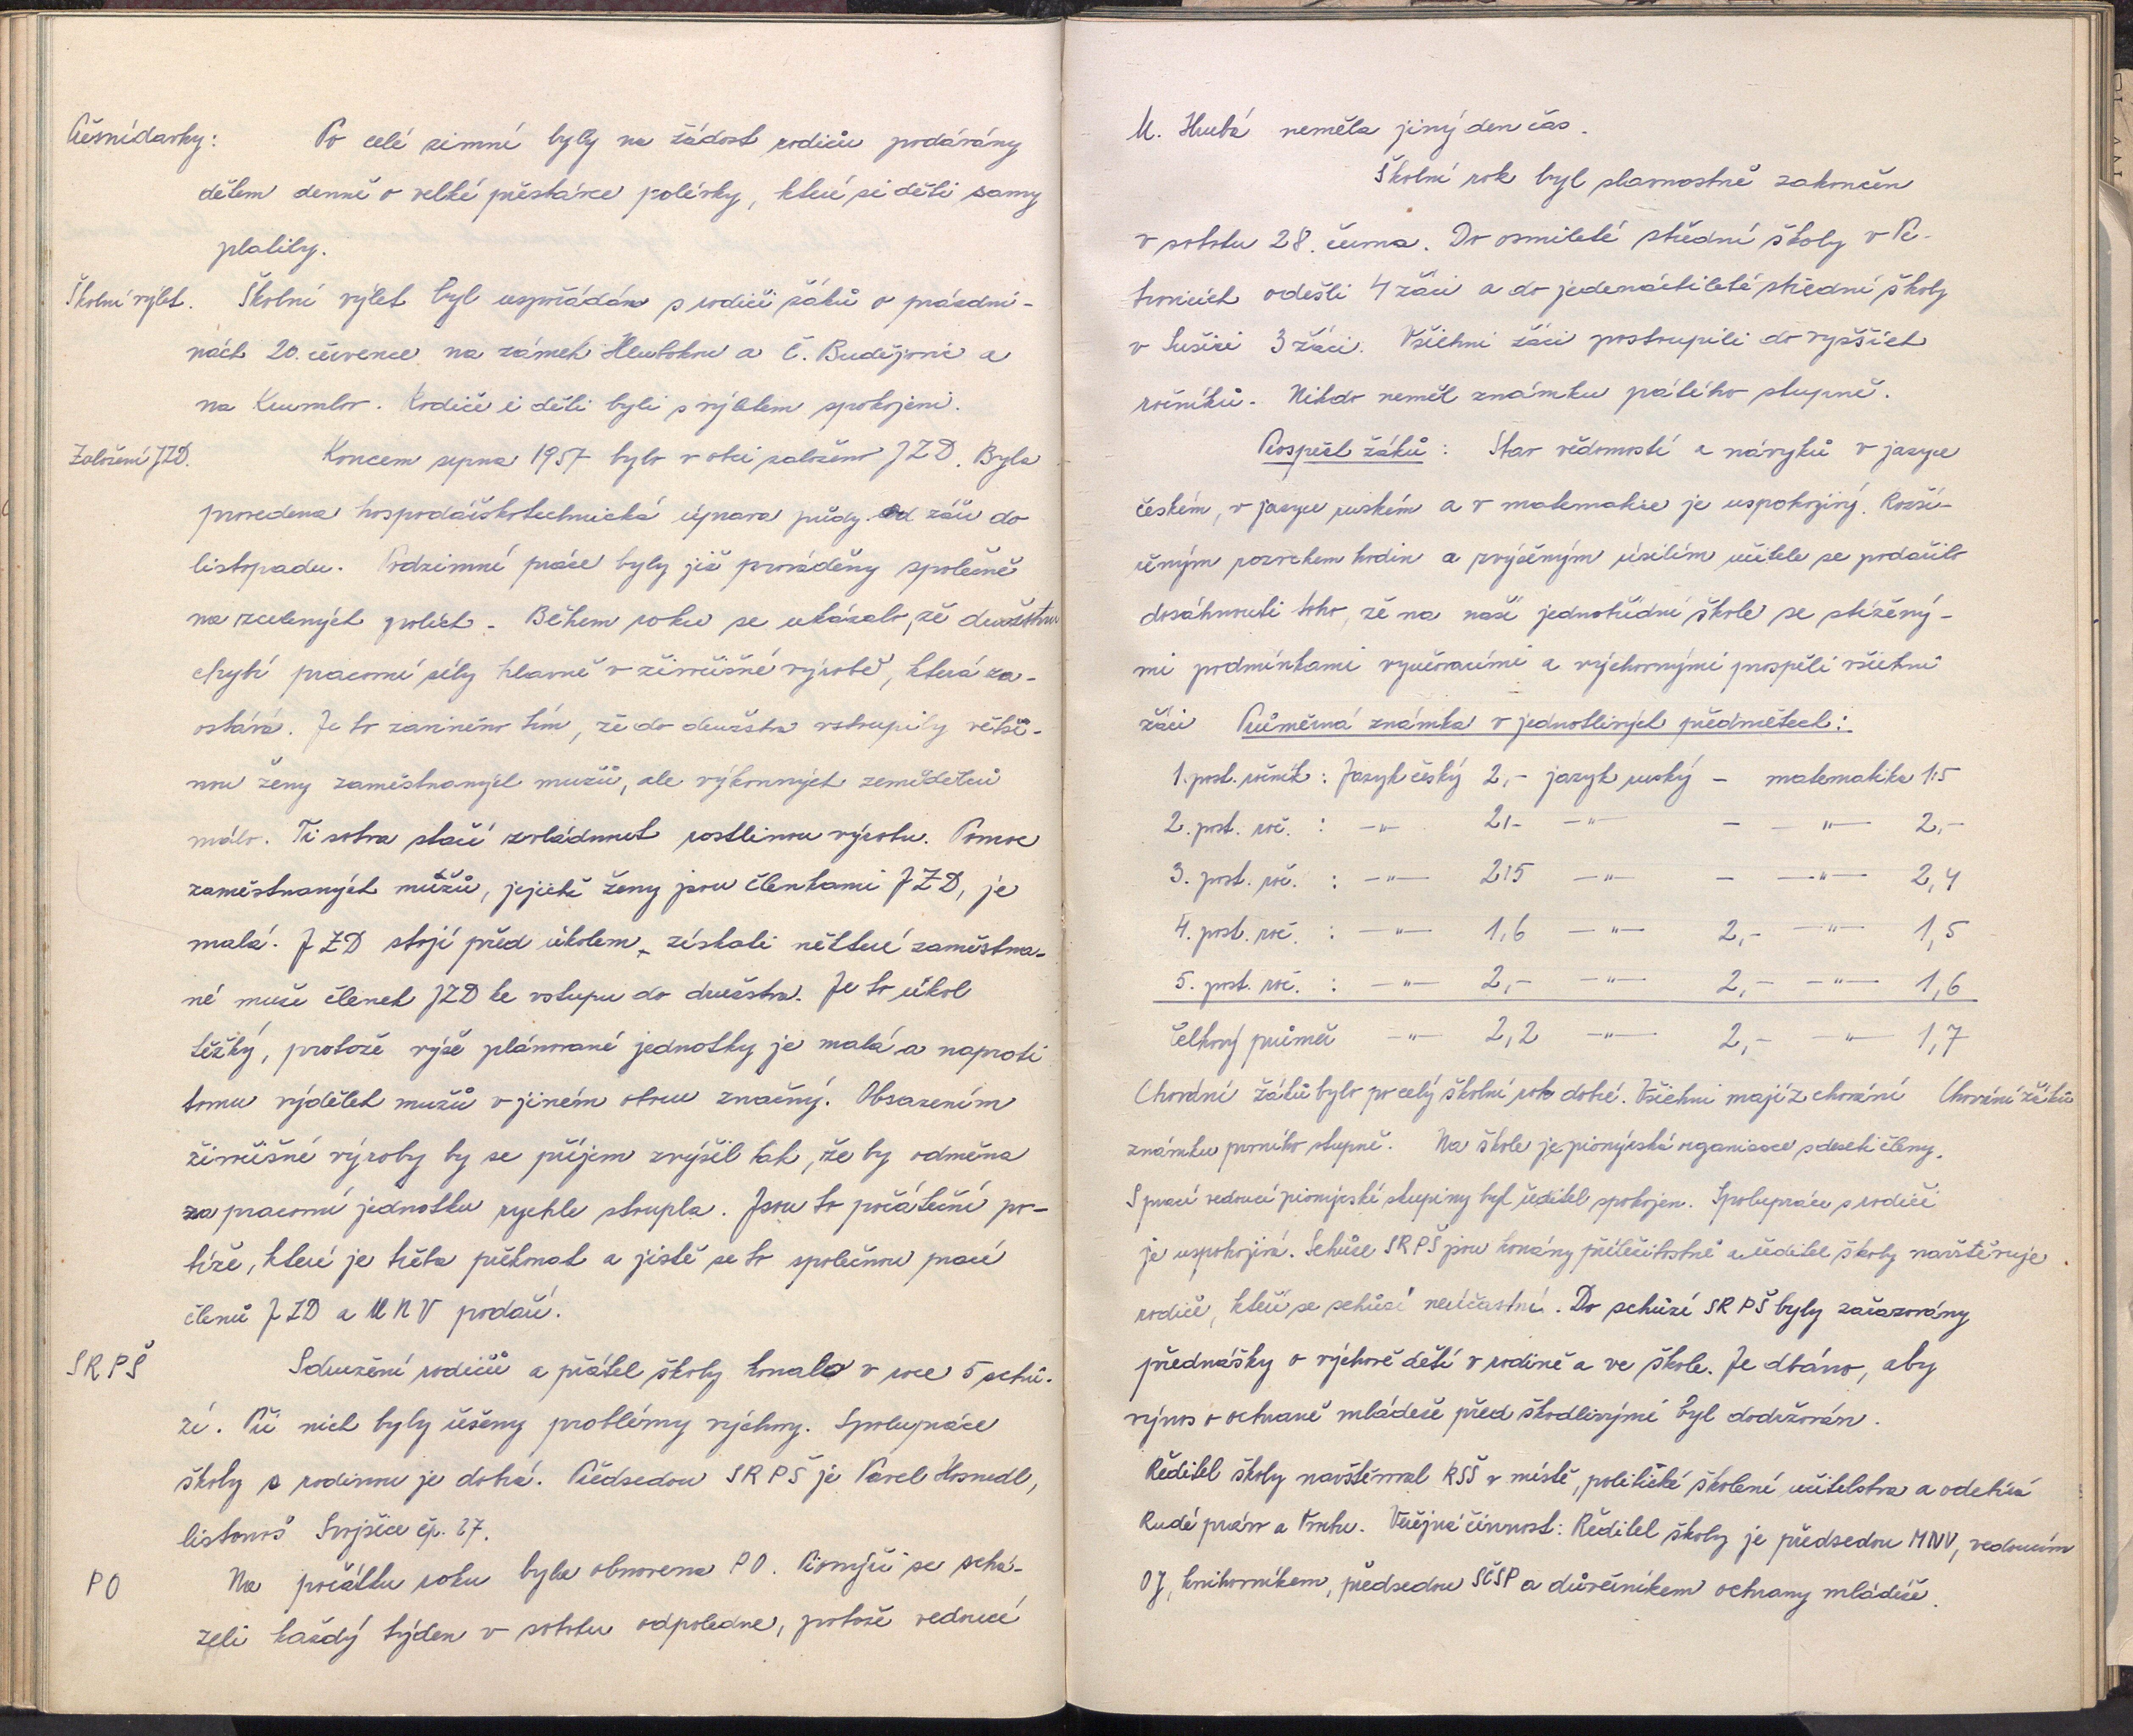 Přesnídavky: Po celé zimní byly na žádost rodičů podávány
dětem denně o velké přestávce polévky, které si děti samy
platily.
Školní výlet. Školní výlet byl uspořádán s rodiči žáků o prázdni-
nách 20. července na zámek Hlubokou a Č. Budějovic a
na Krumlov. Rodiče i děti byli s výletem spokojeni.
Založení JZD. Koncem srpna 1957 bylo v obci založeno JZD. Byla
provedena hospodářskotechnická úprava půdy od září do
listopadu. Podzimní práce byly již prováděny společně
na scelených polích. Během roku se ukázalo, že družstvu
chybí pracovní síly hlavně v živočišné výrobě, která za-
ostává. Je to zaviněno tím, že do družstva vstoupily větši-
nou ženy zaměstnaných mužů, ale výkonných zemědělců
málo. Ti sotva stačí zvládnout rostlinou výrobu. Pomoc
zaměstnaných mužů, jejichž ženy jsou členkami JZD, je
malá. JZD stojí před úkolem získati některé zaměstna-
né muže členek JZD ke vstupu do družstva. Je to úkol
těžký, protože výše plánované jednotky je malá a naproti
tomu výdělek mužů v jiném oboru značný. Obsazením
živočišné výroby by se příjem zvýšil tak, že by odměna
za pracovní jednotku rychle stoupla. Jsou to počáteční po-
tíže, které je třeba překonat a jistě se to společnou prací
členů JZD a MNV podaří.
SRPŠ Sdružení rodičů a přátel školy konalo v roce 5 schů-
zí. Při nich byly řešeny problémy výchovy. Spolupráce
školy s rodinou je dobrá. Předsedou SRPŠ je Pavel Hosnedl,
listonoš Svojšice čp. 27.
PO Na počátku roku byla obnovena PO. Pionýři se schá-
zeli každý týden v sobotu odpoledne, protože vedoucí
M. Hrubá neměla jiný den čas.
Školní rok byl slavnostně zakončen
v sobotu 28. června. Do osmileté střední školy v Pe-
trovicích odešli 4 žáci a do jedenáctileté střední školy
v Sušici 3 žáci. Všichni žáci postoupili do vyšších
ročníků. Nikdo neměl známku pátého stupně.
Prospěch žáků: Stav vědomostí a návyků v jazyce
českém, v jazyce ruském a v matematice je uspokojivý. Rozší-
řeným rozvrhem hodin a zvýšeným úsilím učitele se podařilo
dosáhnouti toho, že na naší jednotřídní škole se stížený-
mi podmínkami vyučovacími a výchovnými prospěli všichni
žáci Průměrná známka v jednotlivých předmětech:
1. post. ročník: Jazyk český 2,- jazyk ruský - matematika 1,5
2. post. roč. : -"- 2,- -"- - -"- 2,-
3. post. roč. : -"- 2,5 -"- - -"- 2,4
4. post. roč. : -"- 1,6 -"- 2,- -"- 1,5
5. post. roč. : -"- 2,- -"- 2,- -"- 1,6
Celkový průměr -"- 2,2 -"- 2,- -"- 1,7
Chování žáků bylo po celý školní rok dobré. Všichni mají z chování Chování žáků
známku prvního stupně. Na škole je pionýrská organisace s deseti členy.
S prací vedoucí pionýrské skupiny byl ředitel spokojen. Spolupráce s rodiči
je uspokojivá. Schůze SRPŠ jsou konány příležitostně a ředitel školy navštěvuje
rodiče, kteří se schůzí neúčastní. Do schůzí SRPŠ byly zařazovány
přednášky o výchově dětí v rodině a ve škole. Je dbáno, aby
výnos o ochraně mládeže před škodlivými byl dodržován.
Ředitel školy navštěvoval RSŠ v místě, politické školení učitelstva a odebírá
Rudé právo a Tvorbu. Veřejná činnost: Ředitel školy je předsedou MNV, vedoucím
OJ, knihovníkem, předsedou SČSP a důvěrníkem ochrany mládeže.